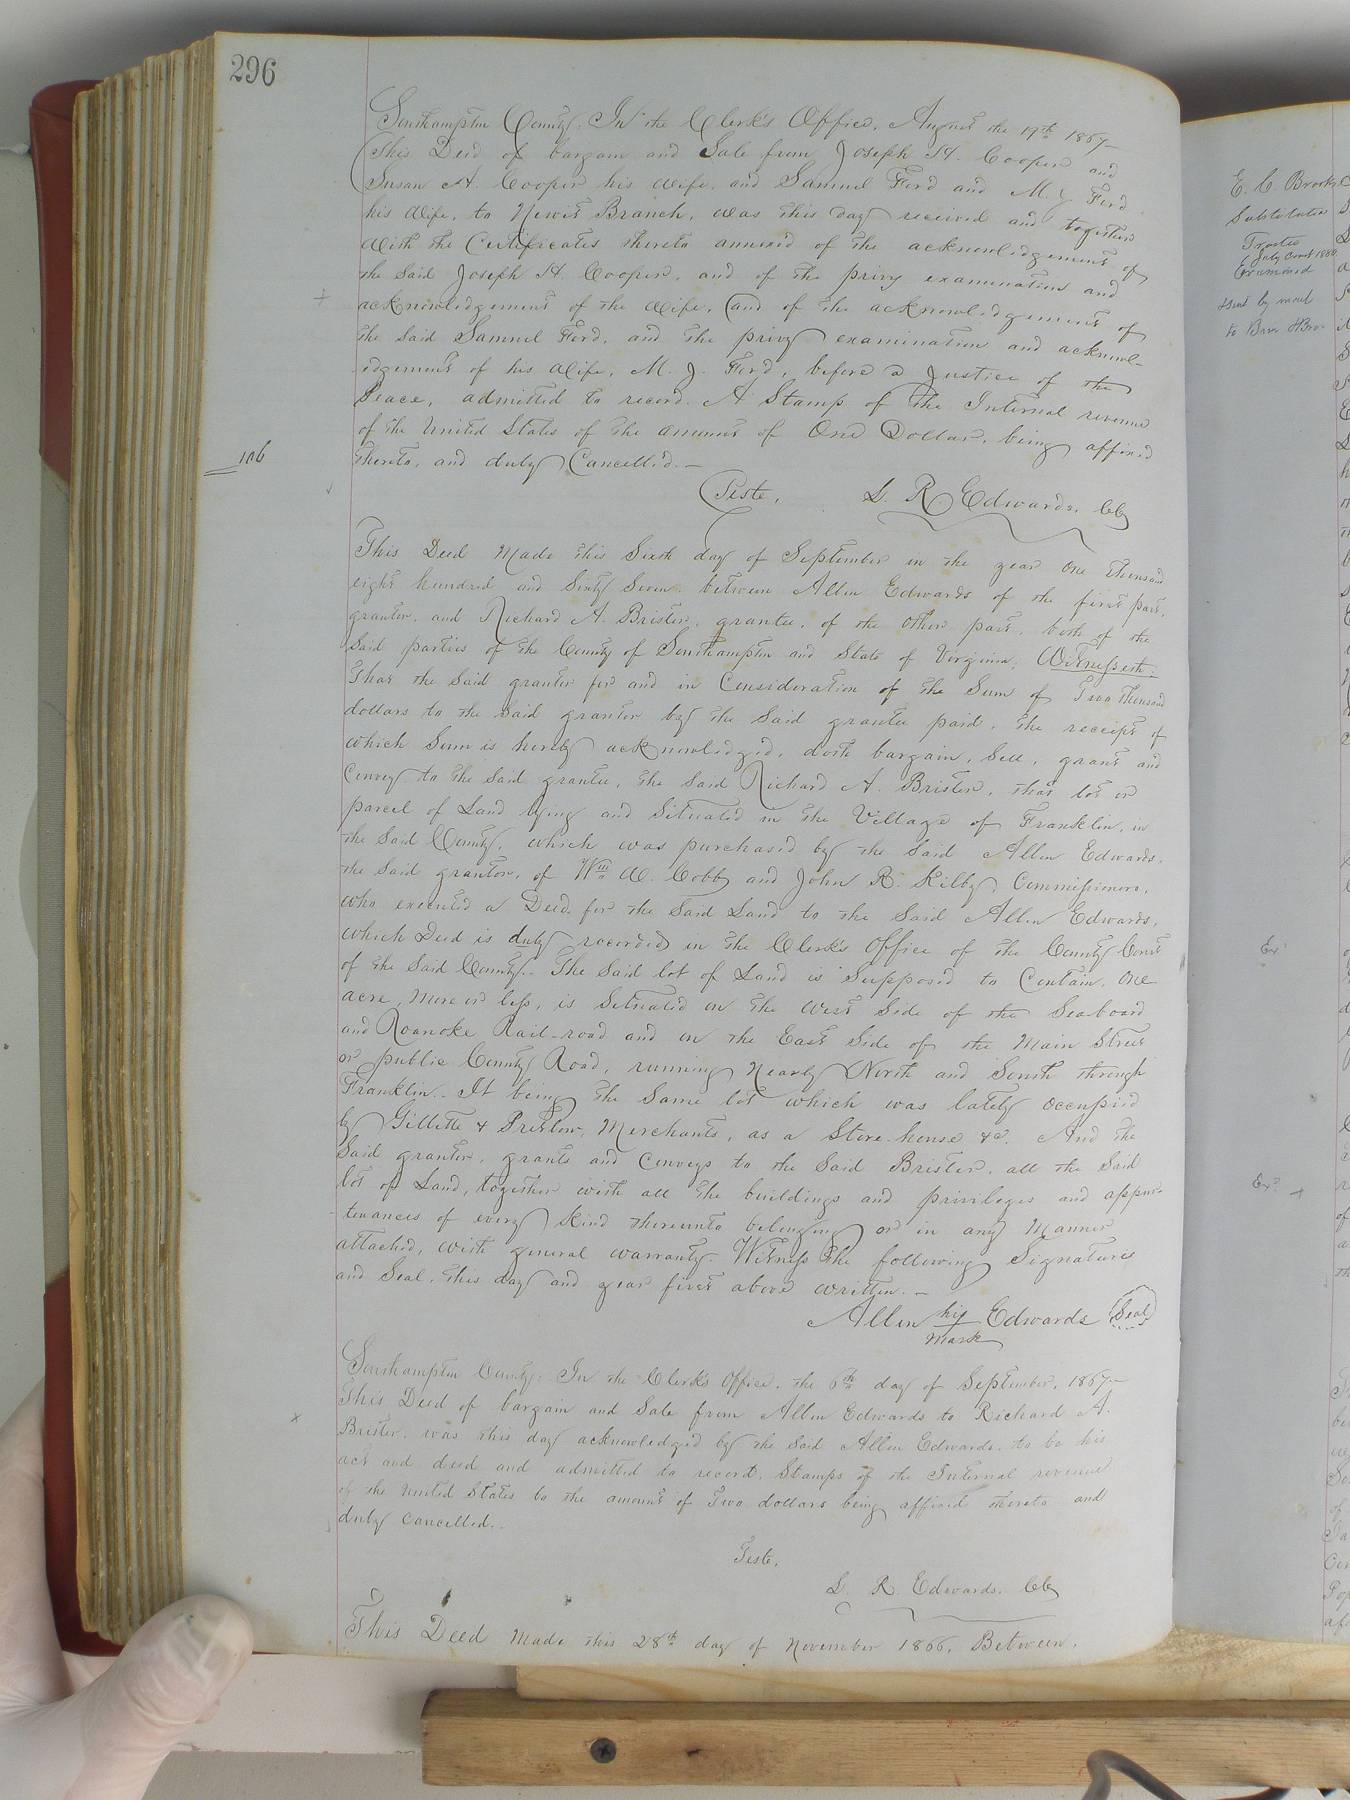 296
Southampton County. In the Clerk's Office, August the 19th 1867—
This Deed of bargain and Sale from Joseph H. Cooper and
Susan A. Cooper his wife, and Samuel Ford and M. J. Ford
his wife, to Newit Branch, was this day received and together
with the Certificates thereto annexed of the acknowledgement of
the said Joseph H. Cooper, and of the privy examination and
acknowledgement of the wife, and of the acknowledgement of
the said Samuel Ford, and the privy examination and acknowl-
edgement of his wife, M. J. Ford, before a Justice of the
Peace, admitted to record. A Stamp of the Internal revenue
of the United States of the amount of One Dollar, being affixed
thereto, and duly Cancelled.—
106
Teste, L. R. Edwards, Clk
This Deed made this Sixth day of September in the year One thousand
eight hundred and Sixty Seven between Allen Edwards of the first part,
grantor, and Richard A. Brister, grantee, of the other part, both of the
Said parties of the County of Southampton and State of Virginia; Witnesseth;
That the Said grantor for and in Consideration of the Sum of Two thousand
dollars to the Said grantor by the Said grantee paid, the receipt of
which Sum is hereby acknowledged, doth bargain, Sell, grant and
Convey to the Said grantee, the said Richard A. Brister, that lot or
parcel of Land lying and Situated in the Village of Franklin, in
the Said County, which was purchased by the Said Allen Edwards,
the Said grantor, of Wm W. Cobb and John R. Kilby, Commissioners,
who executed a Deed for the Said Land to the Said Allen Edwards,
which Deed is duly recorded in the Clerk's Office of the County Court
of the Said County.. The Said lot of Land is Supposed to Contain, One
acre, more or less, is Situated on the West Side of the Seaboard
and Roanoke Rail-road and on the East Side of the Main Street
or public County Road, running nearly North and South through
Franklin.. It being the Same lot which was lately occupied
by Gillette & Prestow, Merchants, as a Store-house &c. And the
Said grantor, grants and Conveys to the Said Brister, all the Said
lot of Land, together with all the buildings and privileges and appur-
tenances of every Kind thereunto belonging or in any Manner
attached, with general warranty. Witness the following Signature
and Seal, this day and year first above written.—
Allen his Edwards Seal
mark
Southampton County: In the Clerk's Office, the 6th day of September, 1867—
This Deed of bargain and Sale from Allen Edwards to Richard A.
Brister, was this day acknowledged by the Said Allen Edwards, to be his
act and deed and admitted to record, Stamps of the Internal revenue
of the United States to the amount of Two dollars being affixed thereto and
duly cancelled..
Teste,
L. R. Edwards, Clk
This Deed made this 28th day of November 1866, Between,
E. C. Brooks
Substituted
Trustee
July Court 1880
Examined
+sent by mail
to Baer & Bro
Ex'
Ex'd +